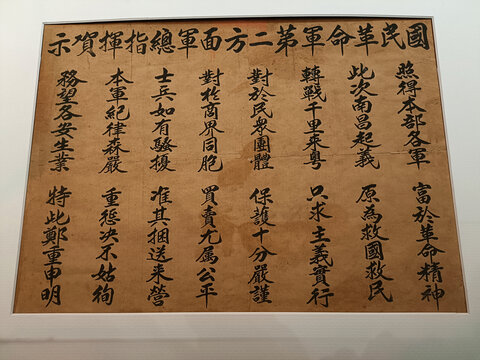 國民革命軍第二方面軍總指揮賀示
照得本部各軍 富於革命精神
此次南昌起義 原為救國救民
轉戰千里來粵 只求主義實行
對於民眾團體 保護十分嚴謹
對於商界同胞 買賣尤属公平
士兵如有騷擾 准其捆送來營
本軍紀律森嚴 重惩決不姑徇
務望各安生業 特此鄭重申明